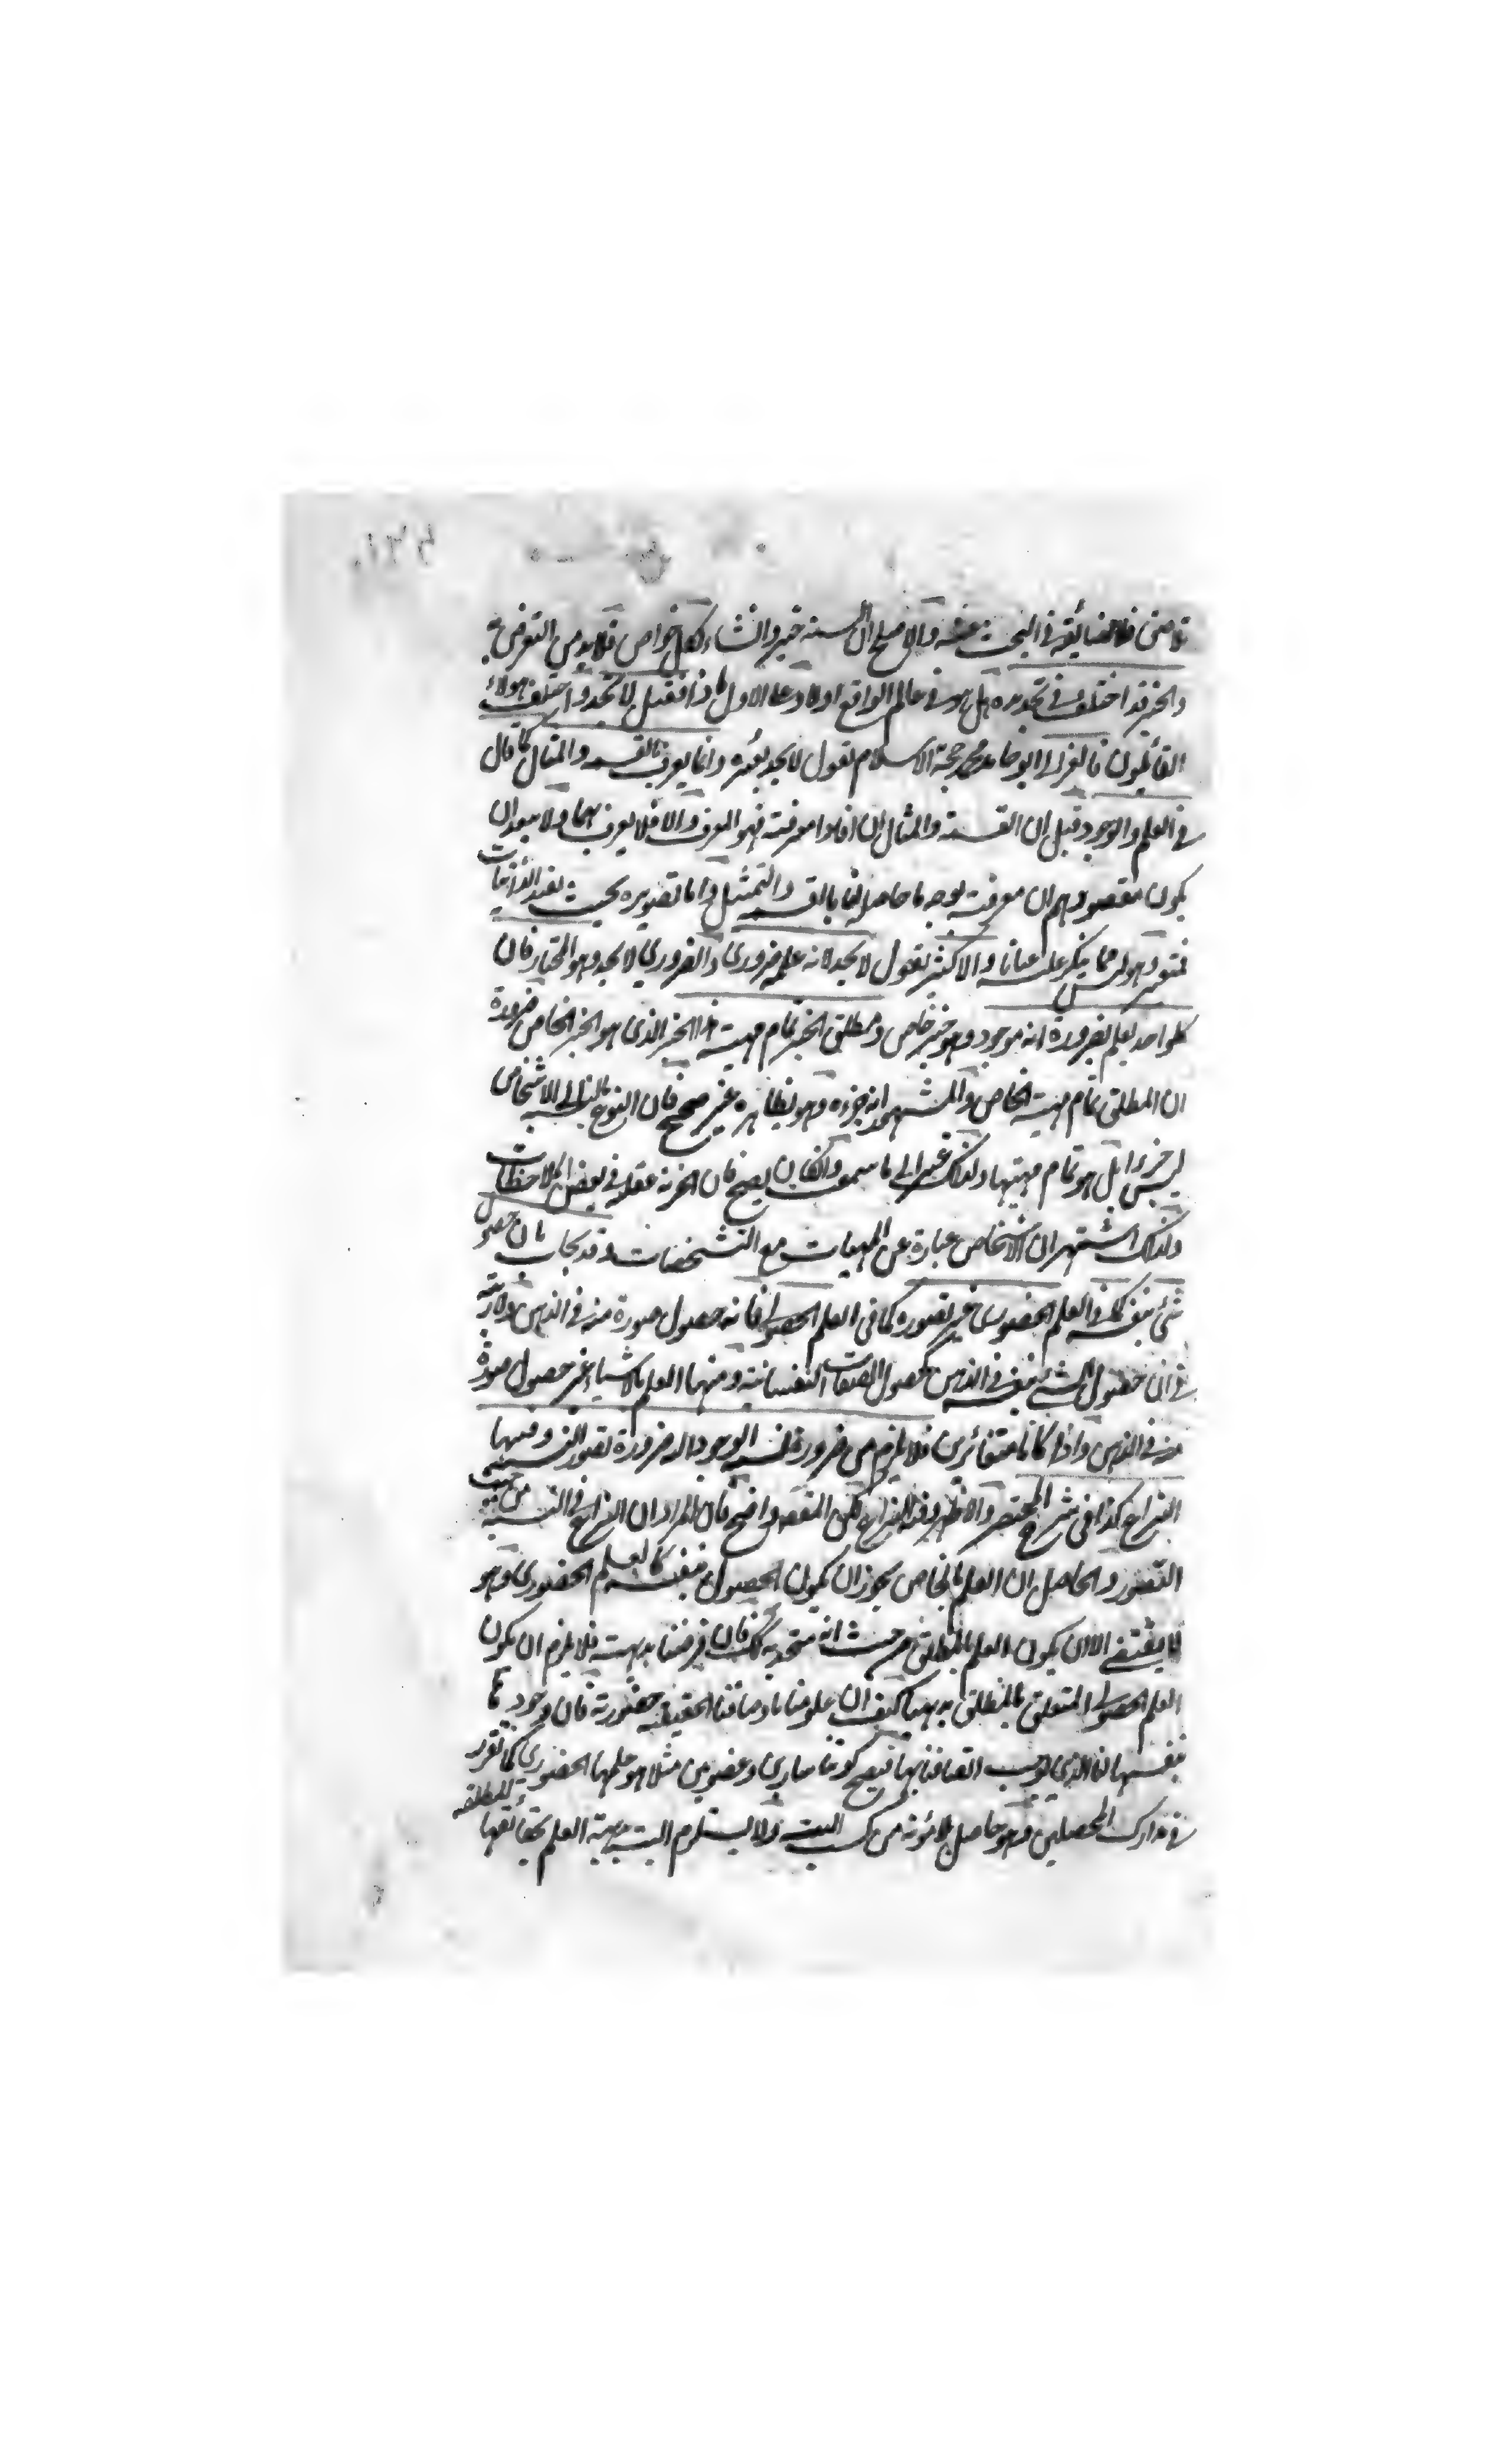 فلا مضائقة في البحث عنه والاصلح ان السنة خبر وانشاء ولكل خواص فلا بد من التعرض به
والخبر قد اختلف في تحديده هل هو في عالم الواقع او لا وعلى الاول ماذا فقيل لا يحد واختلف هؤلاء
القائلون فالغزالي ابو حامد محمد حجة الاسلام يقول لا يحد لعسره وانما يعرف بالقسمة والمثال كما قال
في العلم والوجود قيل ان القسمة والمثال ان افادا معرفته فهو المعرف والا فلا يعرف بهما ولا يبعد ان
يكون مقصودهم ان معرفته بوجه ما حاصل لنا بالقسمة والتمثيل واما تصويره بحيث يفيد الذاتيات
فمتعسر وهو ليس مما ينكر عليه عيانا والاكثر يقول لا يحد لانه علمه ضروري والضروري لا يحد وهو المختار فان
كل واحد يعلم بضرورة انه موجود وهو خبر خاص ومطلق الخبر تمام مهية هذا الخبر الذي هو الخبر الخاص ضرورة
ان المطلق تمام مهية الخاص والمشهور انه جزءه وهو بظاهره غير صحيح فان النوع بالنسبة الى الاشخاص
ليس جزءا بل هو تمام مهيتها ولذلك غير الى ما سمعت وان كان يصح فان الجزئية عقلية في بعض الملاحظات
ولذلك اشتهر ان الاشخاص عبارة عن المهيات مع التشخصات وقد يجاب بان حصول
شيء بنفسه كما في العلم الحضوري غير تصوره كما في العلم الحصولي فانه حصول صورة منه في الذهن ولا ريب
في ان حصول الشيء بنفسه في الذهن كحصول الصفات النفسانية ومنها العلم بالاشياء غير حصول صورة
منه في الذهن واذا كانا متغائرين فلا يلزم من ضرورة نسبة الوجود اليه ضرورة تصور النسبة وفيها
النزاع كذا في شرح المختصر والاظهر وفيه النزاع لكن المقصود واضح فان المراد ان النزاع في النسبة من حيث
التصور والحاصل ان العلم بالخاص يجوز ان يكون الحصول بنفسه كالعلم الحضوري وهو
لا يقتضي الا ان يكون العلم بالمطلق من حيث انه متحد به كذلك فان فرضنا بديهته فلا يلزم ان يكون
العلم الحصولي المتعلق بالمطلق بديهيا كيف ان علومنا باوصافنا الحقيقية حضورية فان وجودها
بنفسها لنا الذي يوجب اتصافنا بها
في مدارك المحصلين وهو حاصل بلا مؤنة من كسب البتة ولا يستلزم البتة بديهة العلم بحقائقها المطلقة